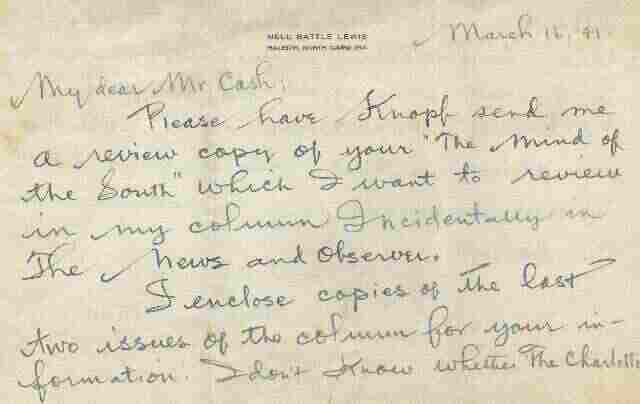 NELL BATTLE LEWIS
RALEIGH, NORTH CAROLINA
March 16, 41.
My dear Mr. Cash:
Please have Knopf send me
a review copy of your "The Mind of
the South" which I want to review
in my column Incidentally in
The News and Observer.
I enclose copies of the last
two issues of the column for your in-
formation. I don't know whether The Charlotte